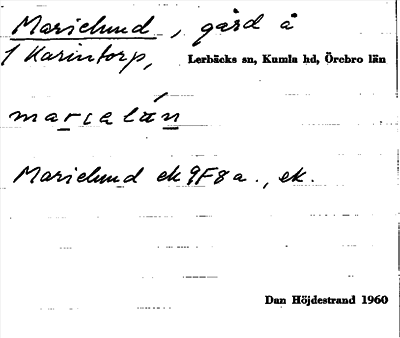 Marielund, gård å
1 Karintorp, Lerbäcks sn, Kumla hd, Örebro län
marıelún
Marielund ek 9F8a., ek.
Dan Höjdestrand 1960